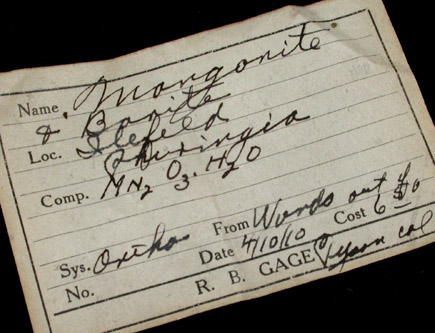 Name Mangonite
& Barite
Loc. Ilefeld
Thuringia
Comp. Mn2 O3. H2O
Sys. Ortho From Wards out f
Date 4/10/10 Cost 6
No. R. B. GAGE col